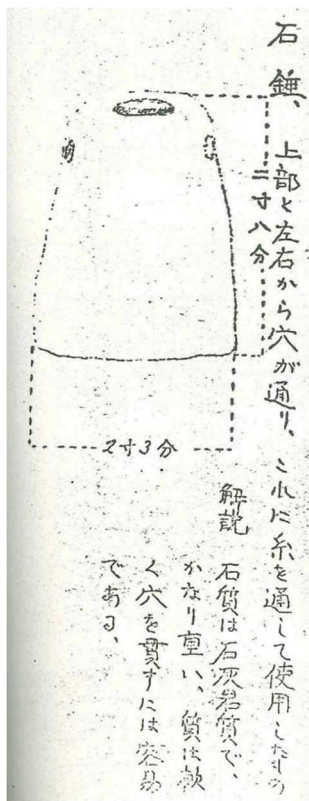 石錘、上部と左右から穴が通り、これに糸を通して使用したもの
二寸八分
2寸3分
解説
石質は石灰岩質で、
かなり重い、質は軟
く穴を貫すには容易
である、